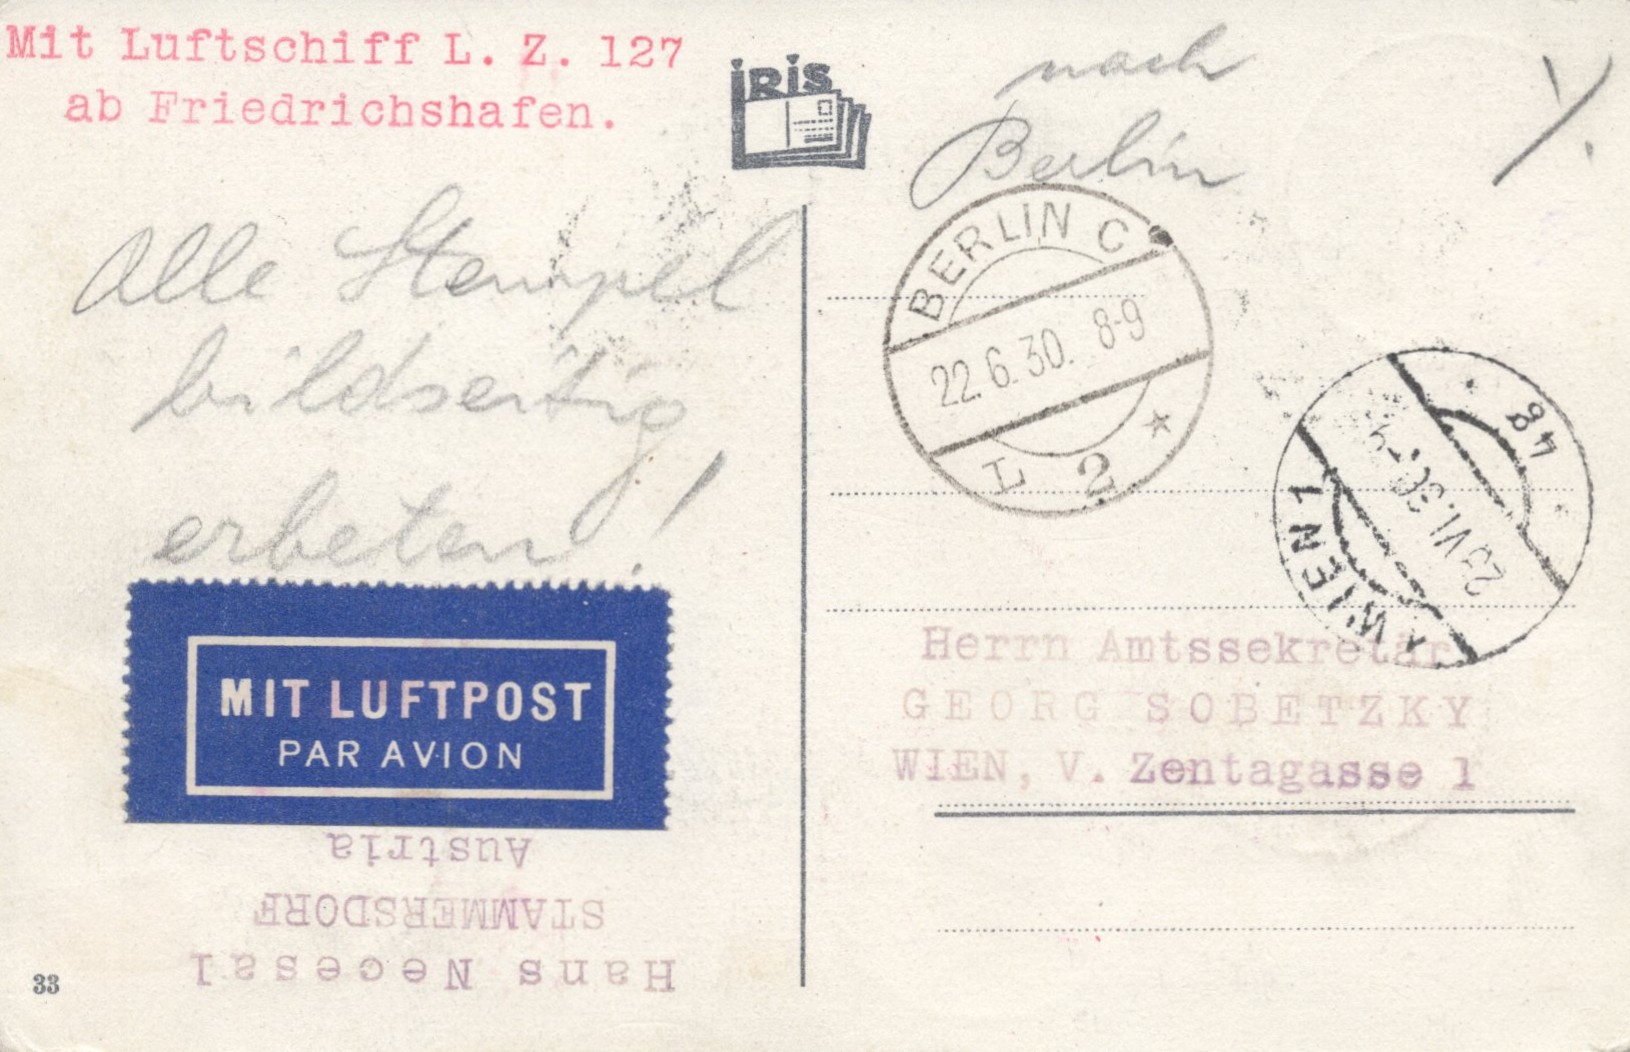 Mit Luftschiff L. Z. 127
ab Friedrichshafen.
IRIS
nach
Berlin
Alle Stempel
bildseitig
erbeten!
BERLIN C
22.6.30. 8-9
L 2
48
VI. 30
WIEN 1
MIT LUFTPOST
PAR AVION
Herrn Amtssekretär
GEORG SOBETZKY
WIEN, V. Zentagasse 1
Hans Necesal
STAMMERSDORF
Austria
33